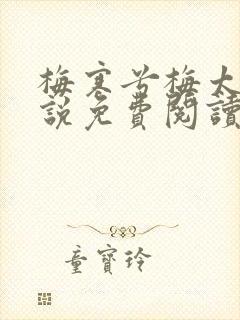 梅寒兮梅大
說免費閱讀
童寶玲